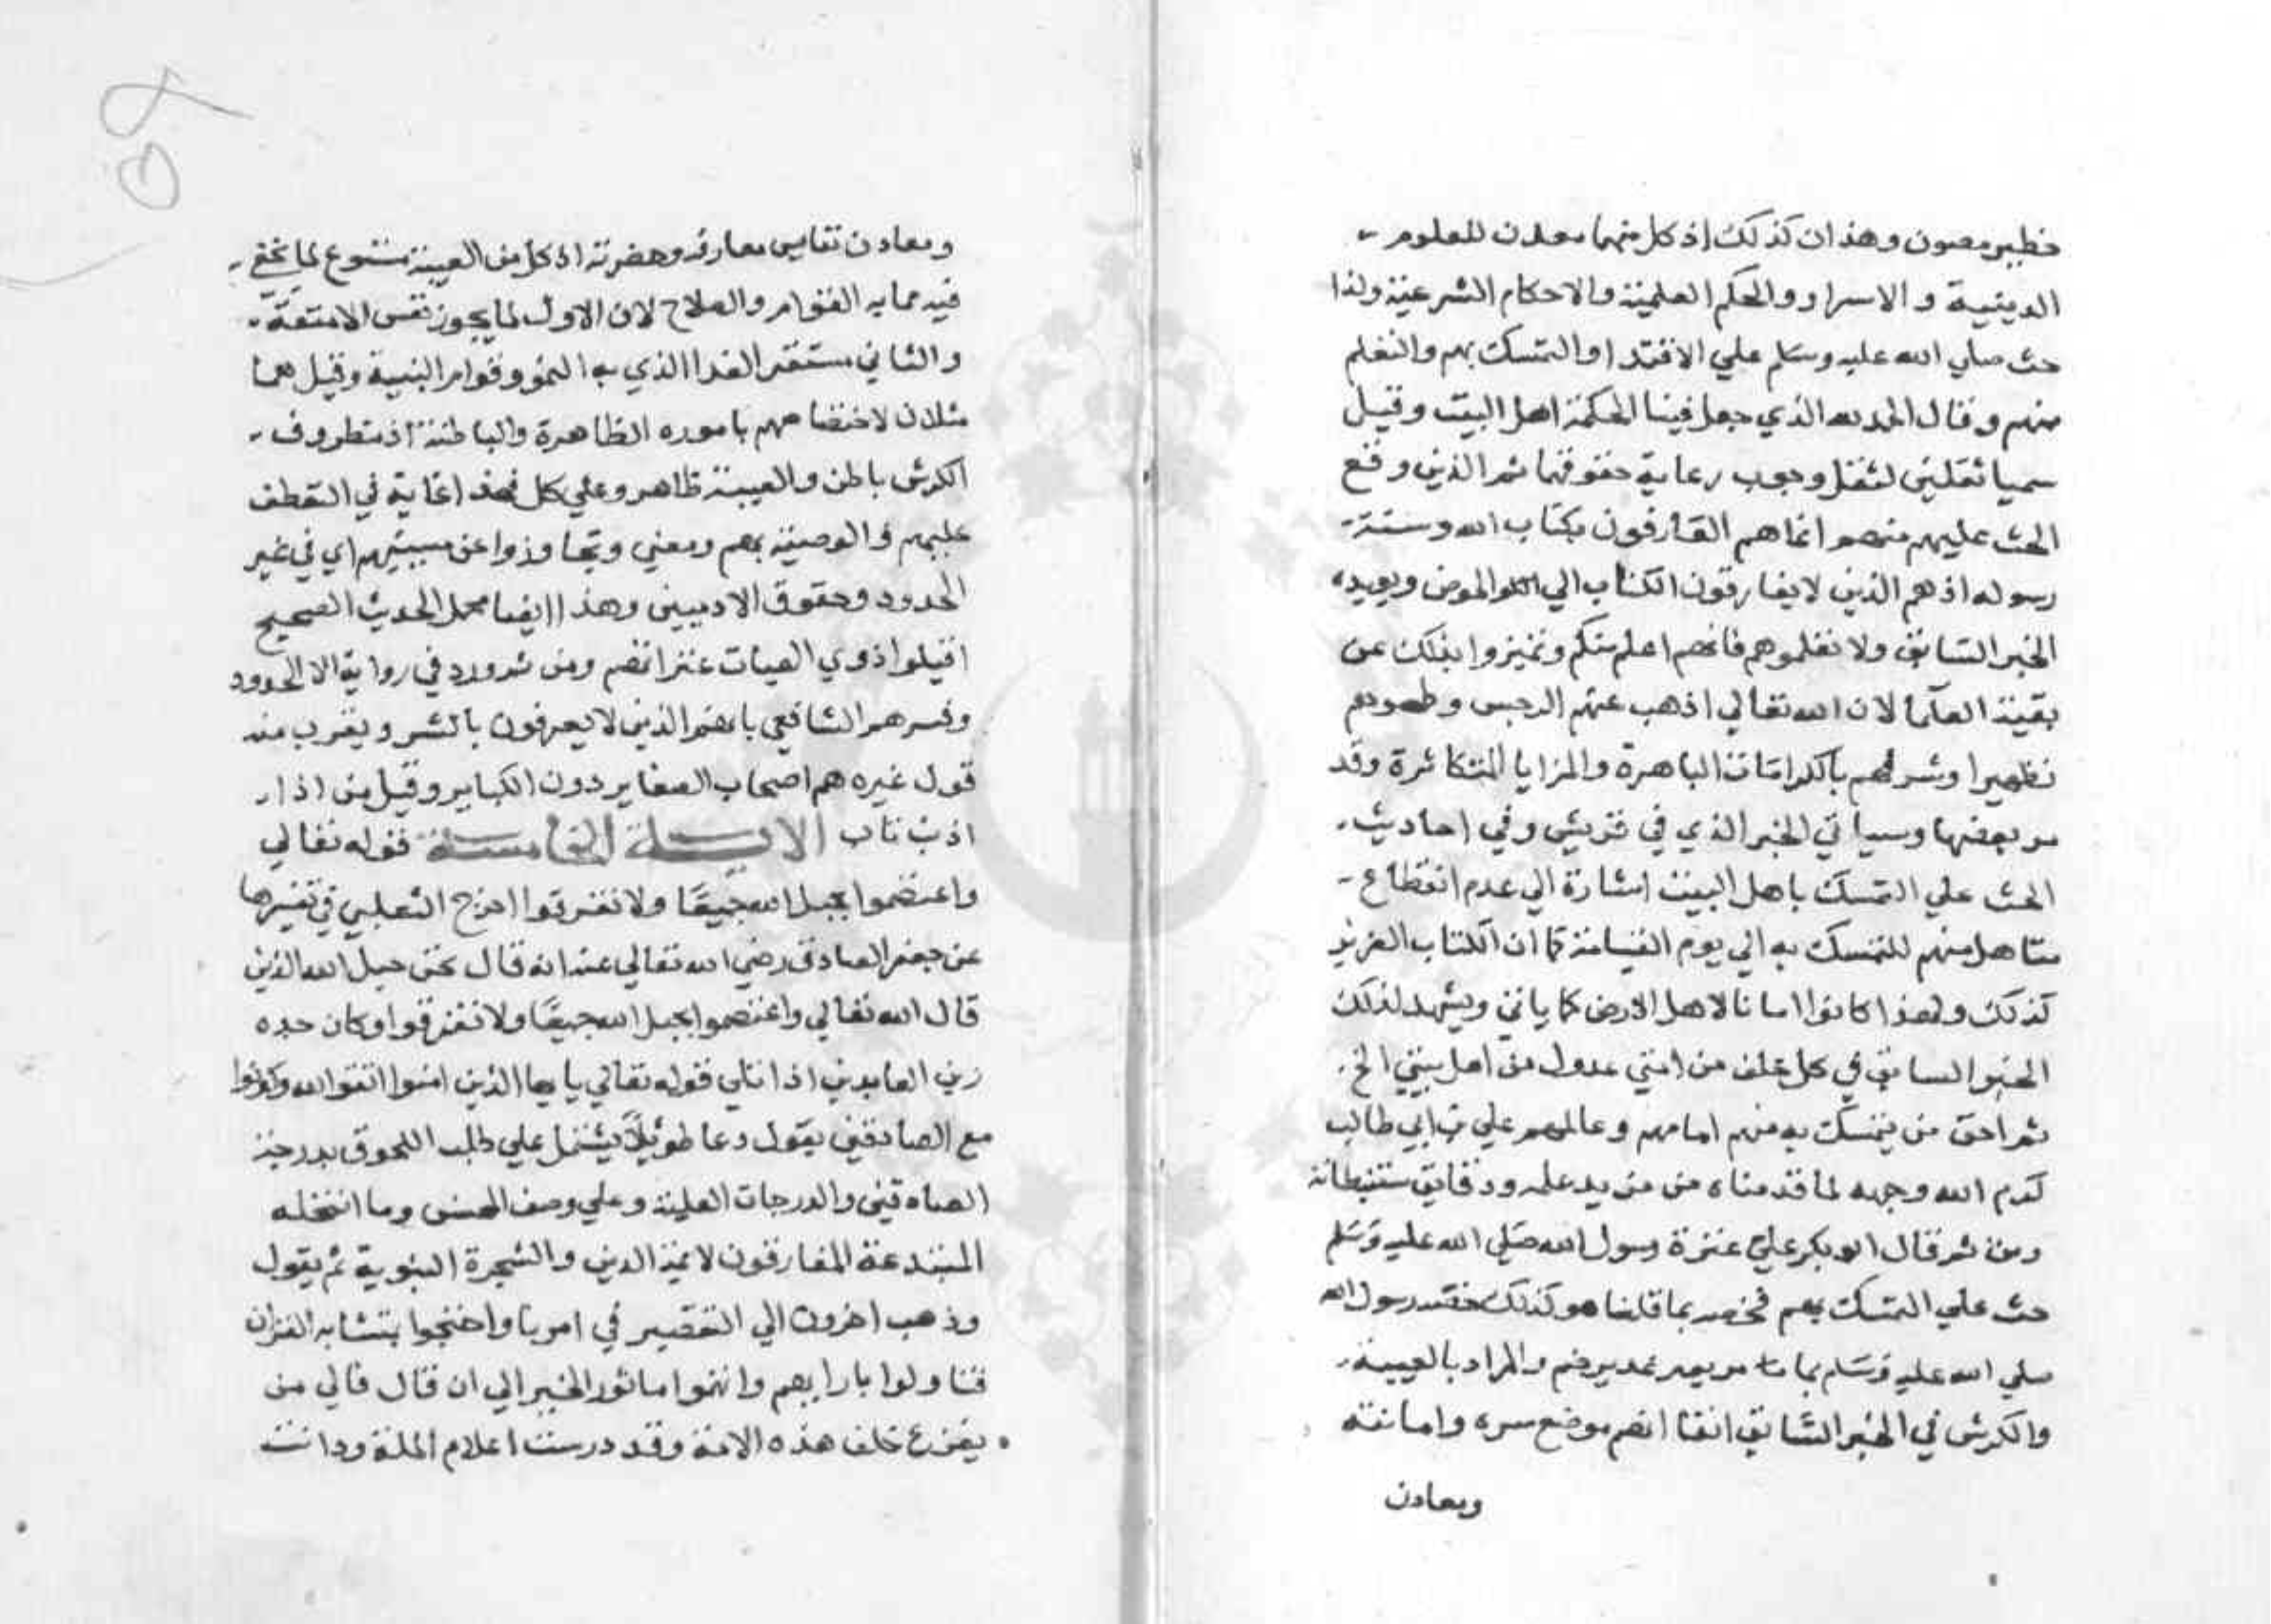 خطير مصون وهذان كذلك اذ كل منهما معدن للعلوم
الدينية والاسرار والحكم العلمية والاحكام الشرعية ولذا
حث صلي الله عليه وسلم علي الاقتدا والتمسك بهم والتعلم
منهم وقال الحمد لله الذي جعل فينا الحكمة اهل البيت وقيل
سميا ثقلين لثقل وجوب رعاية حقوقهما ثم الذين وقع
الحث عليهم منهم انما هم العارفون بكتاب الله وسنة
رسوله اذ هم الذين لا يفارقون الكتاب الي الحوض ويويده
الخبر السابق ولا تعلموهم فانهم اعلم منكم وتميزوا بذلك عن
بقية العلما لان الله تعالي اذهب عنهم الرجس وطهرهم
تطهيرا وشرفهم بالكرامات الباهرة والمزايا المتكاثرة وقد
مر بعضها وسياتي الخبر الذي في قريش وفي احاديث
الحث علي التمسك باهل البيت اشارة الي عدم انقطاع
متاهل منهم للتمسك به الي يوم القيامة كما ان الكتاب العزيز
كذلك ولهذا كانوا امانا لاهل الارض كما ياتي ويشهد لذلك
الخبر السابق في كل خلف من امتي عدول من اهل بيتي الخ
ثم احق من يتمسك به منهم امامهم وعالمهم علي بن ابي طالب
كرم الله وجهه لما قدمناه من مزيد علمه ودقايق مستنبطاته
ومن ثم قال ابو بكر علي عترة رسول الله صلي الله عليه وسلم
حث علي التمسك بهم فخصه بما قلنا هو كذلك خصه رسول الله
صلي الله عليه وسلم بما مر يوم غدير خم والمراد بالعيبة
والكرش في الخبر السابق انفا انهم موضع سره وامانته
ومعادن
ومعادن نفايس معارفه وحضرته اذ كل من العيبة مستوع لما يخفي
فيه مما به القوام والصلاح لان الاول لما يحوز نفس الامتعة
والثاني مستقر الغدا الذي به النمو وقوام البنية وقيل هما
مثلان لاختصاصهم باموره الظاهرة والباطنة اذ مظروف
الكرش باطن والعيبة ظاهر وعلي كل فهذا غاية في التعطف
عليهم والوصية بهم ومعني وتجاوزوا عن مسيئهم اي في غير
الحدود وحقوق الادميين وهذا ايضا محمل الحديث الصحيح
اقيلوا ذوي الهيات عثراتهم ومن ثم ورد في رواية الا الحدود
وفسرهم الشافعي بانهم الذين لا يعرفون بالشر ويقرب منه
قول غيره هم اصحاب الصغاير دون الكباير وقيل من اذا
اذنب تاب الاية الخامسة قوله تعالي
واعتصموا بحبل الله جميعا ولا تفرقوا اخرج الثعلبي في تفسيرها
عن جعفر الصادق رضي الله تعالي عنه انه قال نحن حبل الله الذين
قال الله تعالي واعتصموا بحبل الله جميعا ولا تفرقوا وكان جده
زين العابدين اذا تلي قوله تعالي يا يها الذين امنوا اتقوا الله وكونوا
مع الصادقين يقول دعا طويلا يشتمل علي طلب اللحوق بدرجة
الصادقين والدرجات العلية وعلي وصف المحسن وما انتحله
المبتدعة المفارقون لائمة الدين والشجرة النبوية ثم يقول
وذهب اخرون الي التقصير في امرنا واحتجوا بمتشابه القران
فتاولوا بارايهم واتهموا ماثور الخبر الي ان قال فالي من
يفزع خلف هذه الامة وقد درست اعلام الملة ودانت